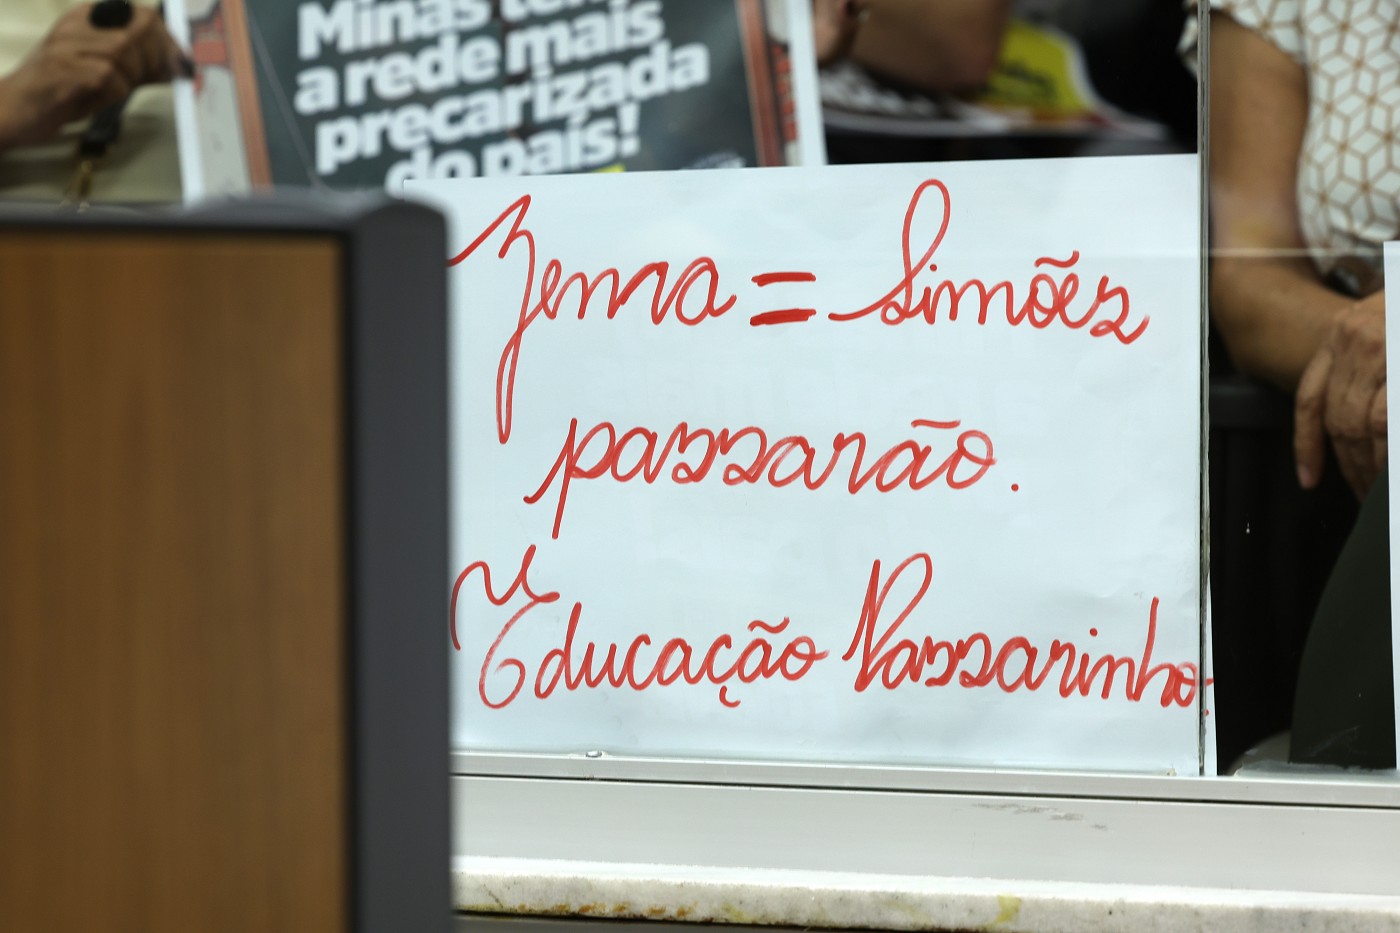 Minas tem
a rede mais
precarizada
do país!
Zema = Simões
passarão.
Educação Passarinho.